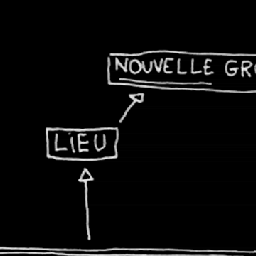 NOUVELLE
LIEU